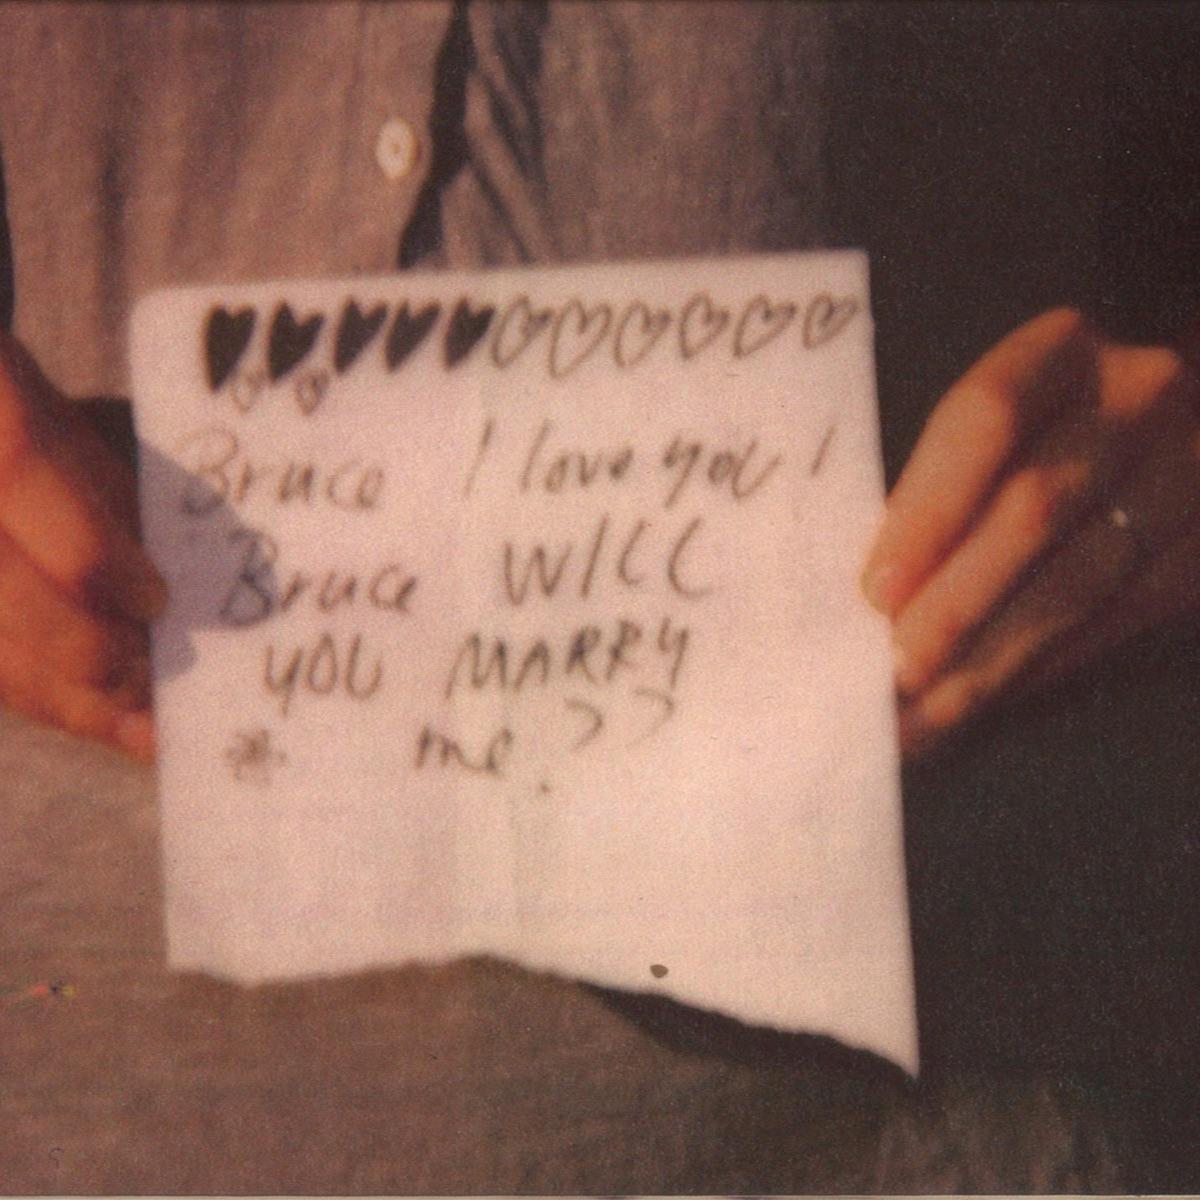 Bruce I love you!
Bruce WILL
YOU MARRY
* me???